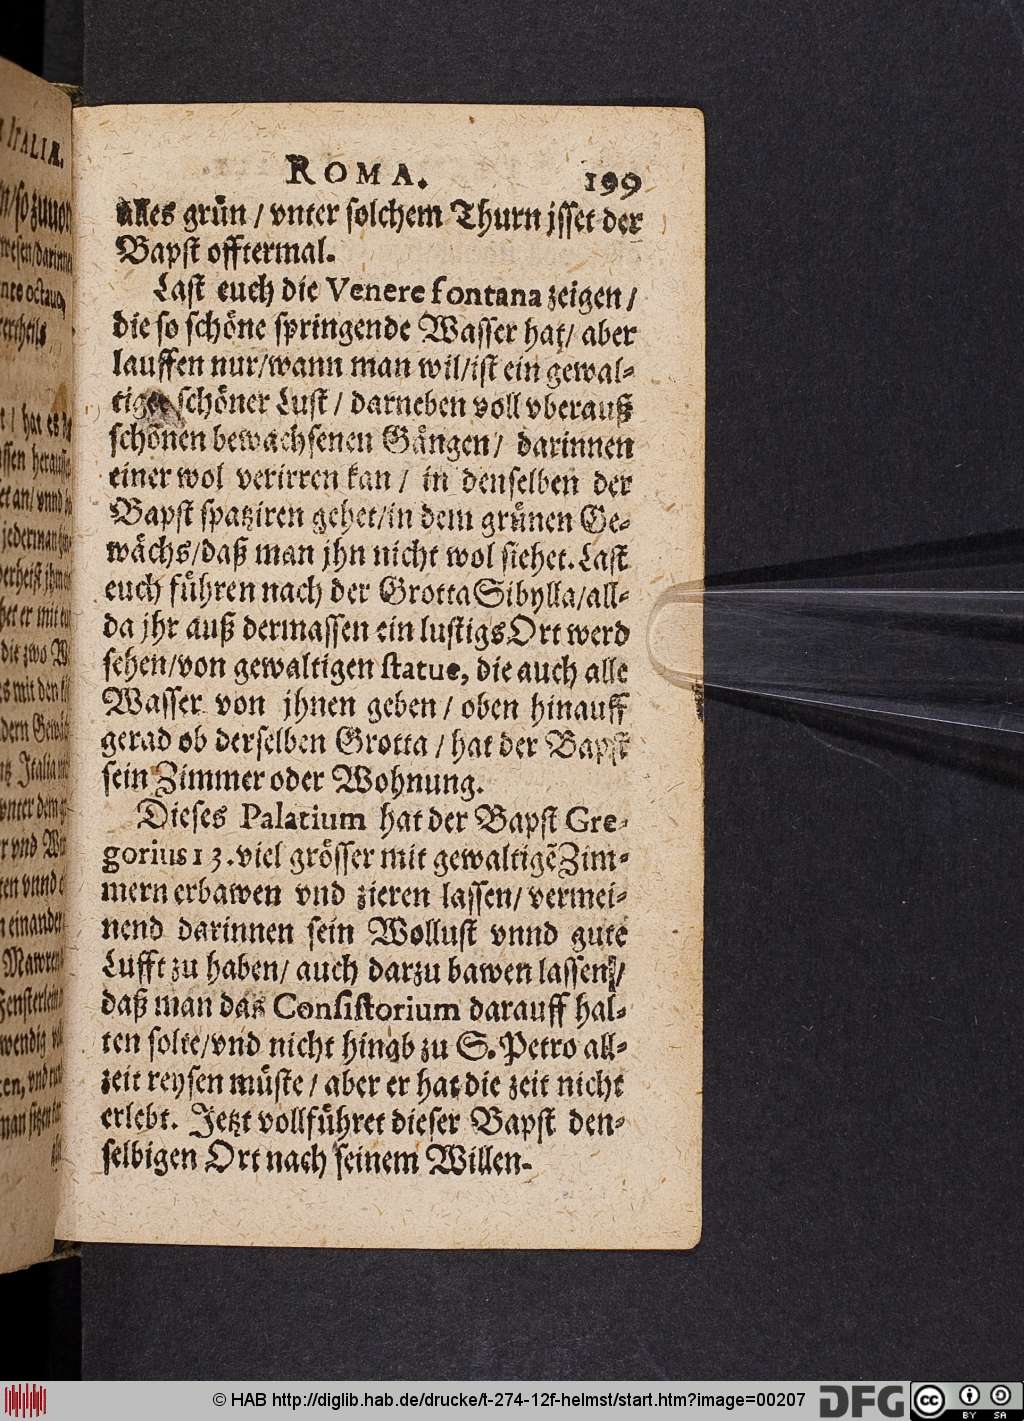 ROMA. 199
alles grün / vnter solchem Thurn jsset der
Bapst offtermal.
Last euch die Venere fontana zeigen /
die so schöne springende Wasser hat / aber
lauffen nur/wann man wil/ist ein gewal-
tiger schöner Lust / darneben voll vberauß
schönen bewachsenen Gängen / darinnen
einer wol verirren kan / in denselben der
Bapst spatziren gehet/in dem grünen Ge-
wächs/daß man jhn nicht wol siehet. Last
euch führen nach der Grotta Sibylla/all-
da jhr auß dermassen ein lustigs Ort werd
sehen/von gewaltigen statue, die auch alle
Wasser von jhnen geben / oben hinauff
gerad ob derselben Grotta / hat der Bapst
sein Zimmer oder Wohnung.
Dieses Palatium hat der Bapst Gre-
gorius 13. viel grösser mit gewaltigẽ Zim-
mern erbawen vnd zieren lassen/ vermei-
nend darinnen sein Wollust vnnd gute
Lufft zu haben/ auch darzu bawen lassen/
daß man das Consistorium darauff hal-
ten solte/vnd nicht hinab zu S. Petro all-
zeit reysen müste / aber er hat die zeit nicht
erlebt. Jetzt vollführet dieser Bapst den-
selbigen Ort nach seinem Willen.
© HAB http://diglib.hab.de/drucke/t-274-12f-helmst/start.htm?image=00207 DFG cc BY SA